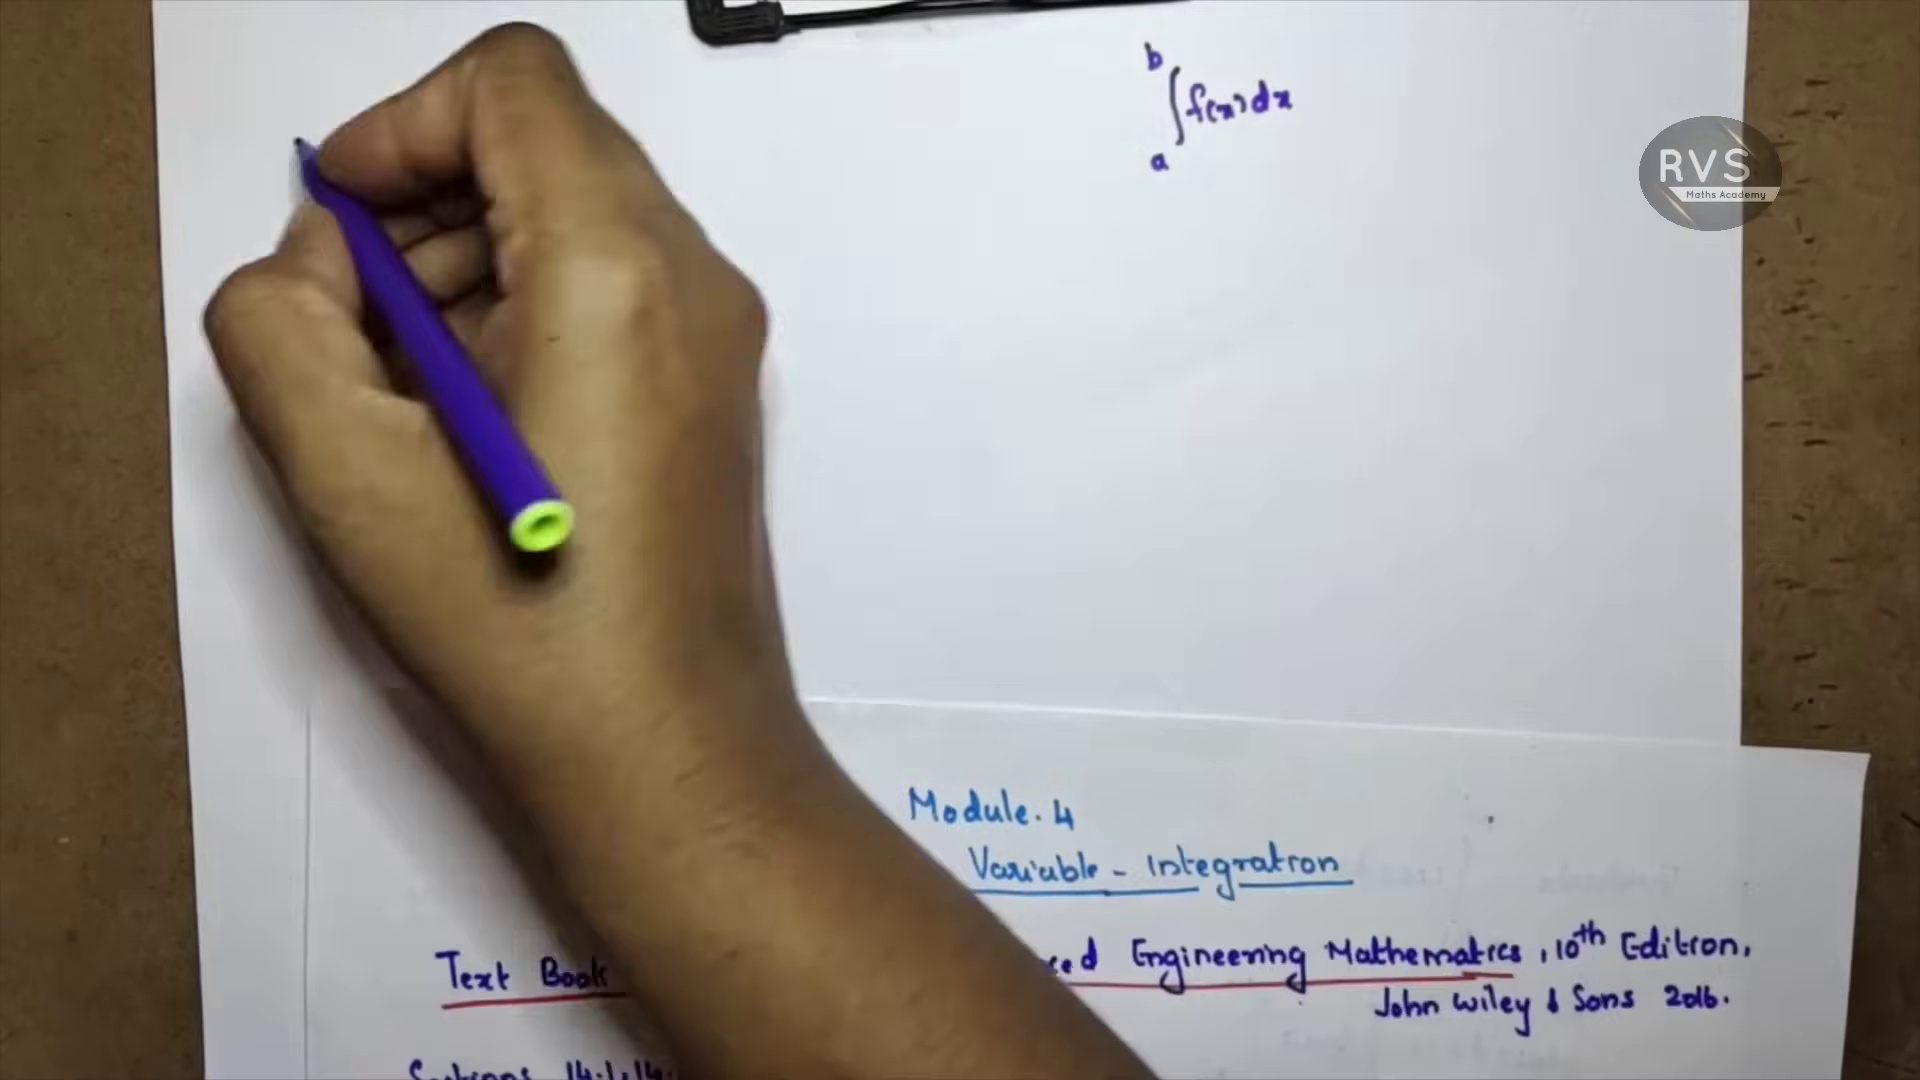 b
∫f(x)dx
a
RVS
Maths Academy
Module. 4
Variable - Integration
Text Book Engineering Mathematics, 10th Edition,
John Wiley & Sons 2016.
Sections 14.1, 14.